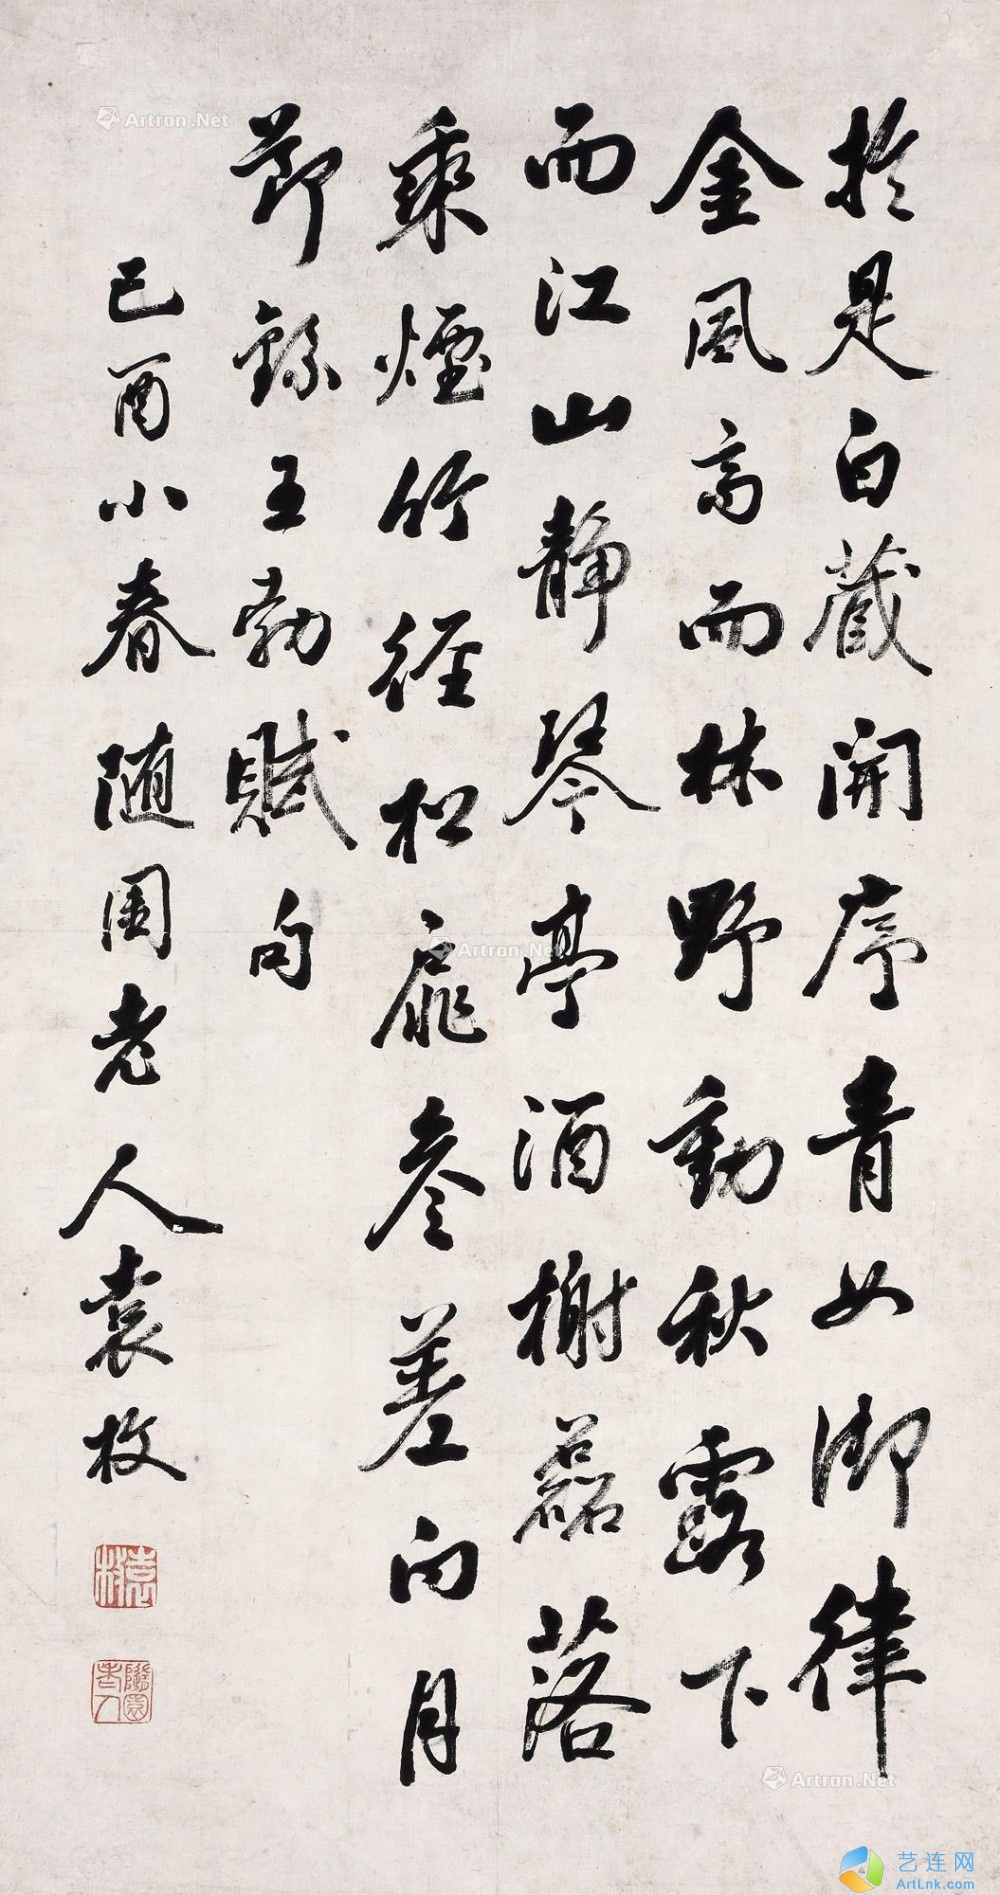 於是白藏開序青女御律
金風高而林野動秋露下
而江山静琴亭酒榭磊落
乘煙竹徑松扉参差向月
節錄王勃賦句
己酉小春随園老人袁枚
袁枚
隨園老人
Artron.Net
Artron.Net
Artron.Net
艺连网
ArtLnk.com